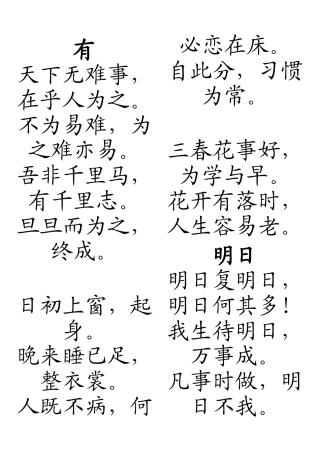 有
天下无难事，
在乎人为之。
不为易难，为
之难亦易。
吾非千里马，
有千里志。
旦旦而为之，
终成。
日初上窗，起
身。
晚来睡已足，
整衣裳。
人既不病，何
必恋在床。
自此分，习惯
为常。
三春花事好，
为学与早。
花开有落时，
人生容易老。
明日
明日复明日，
明日何其多！
我生待明日，
万事成。
凡事时做，明
日不我。